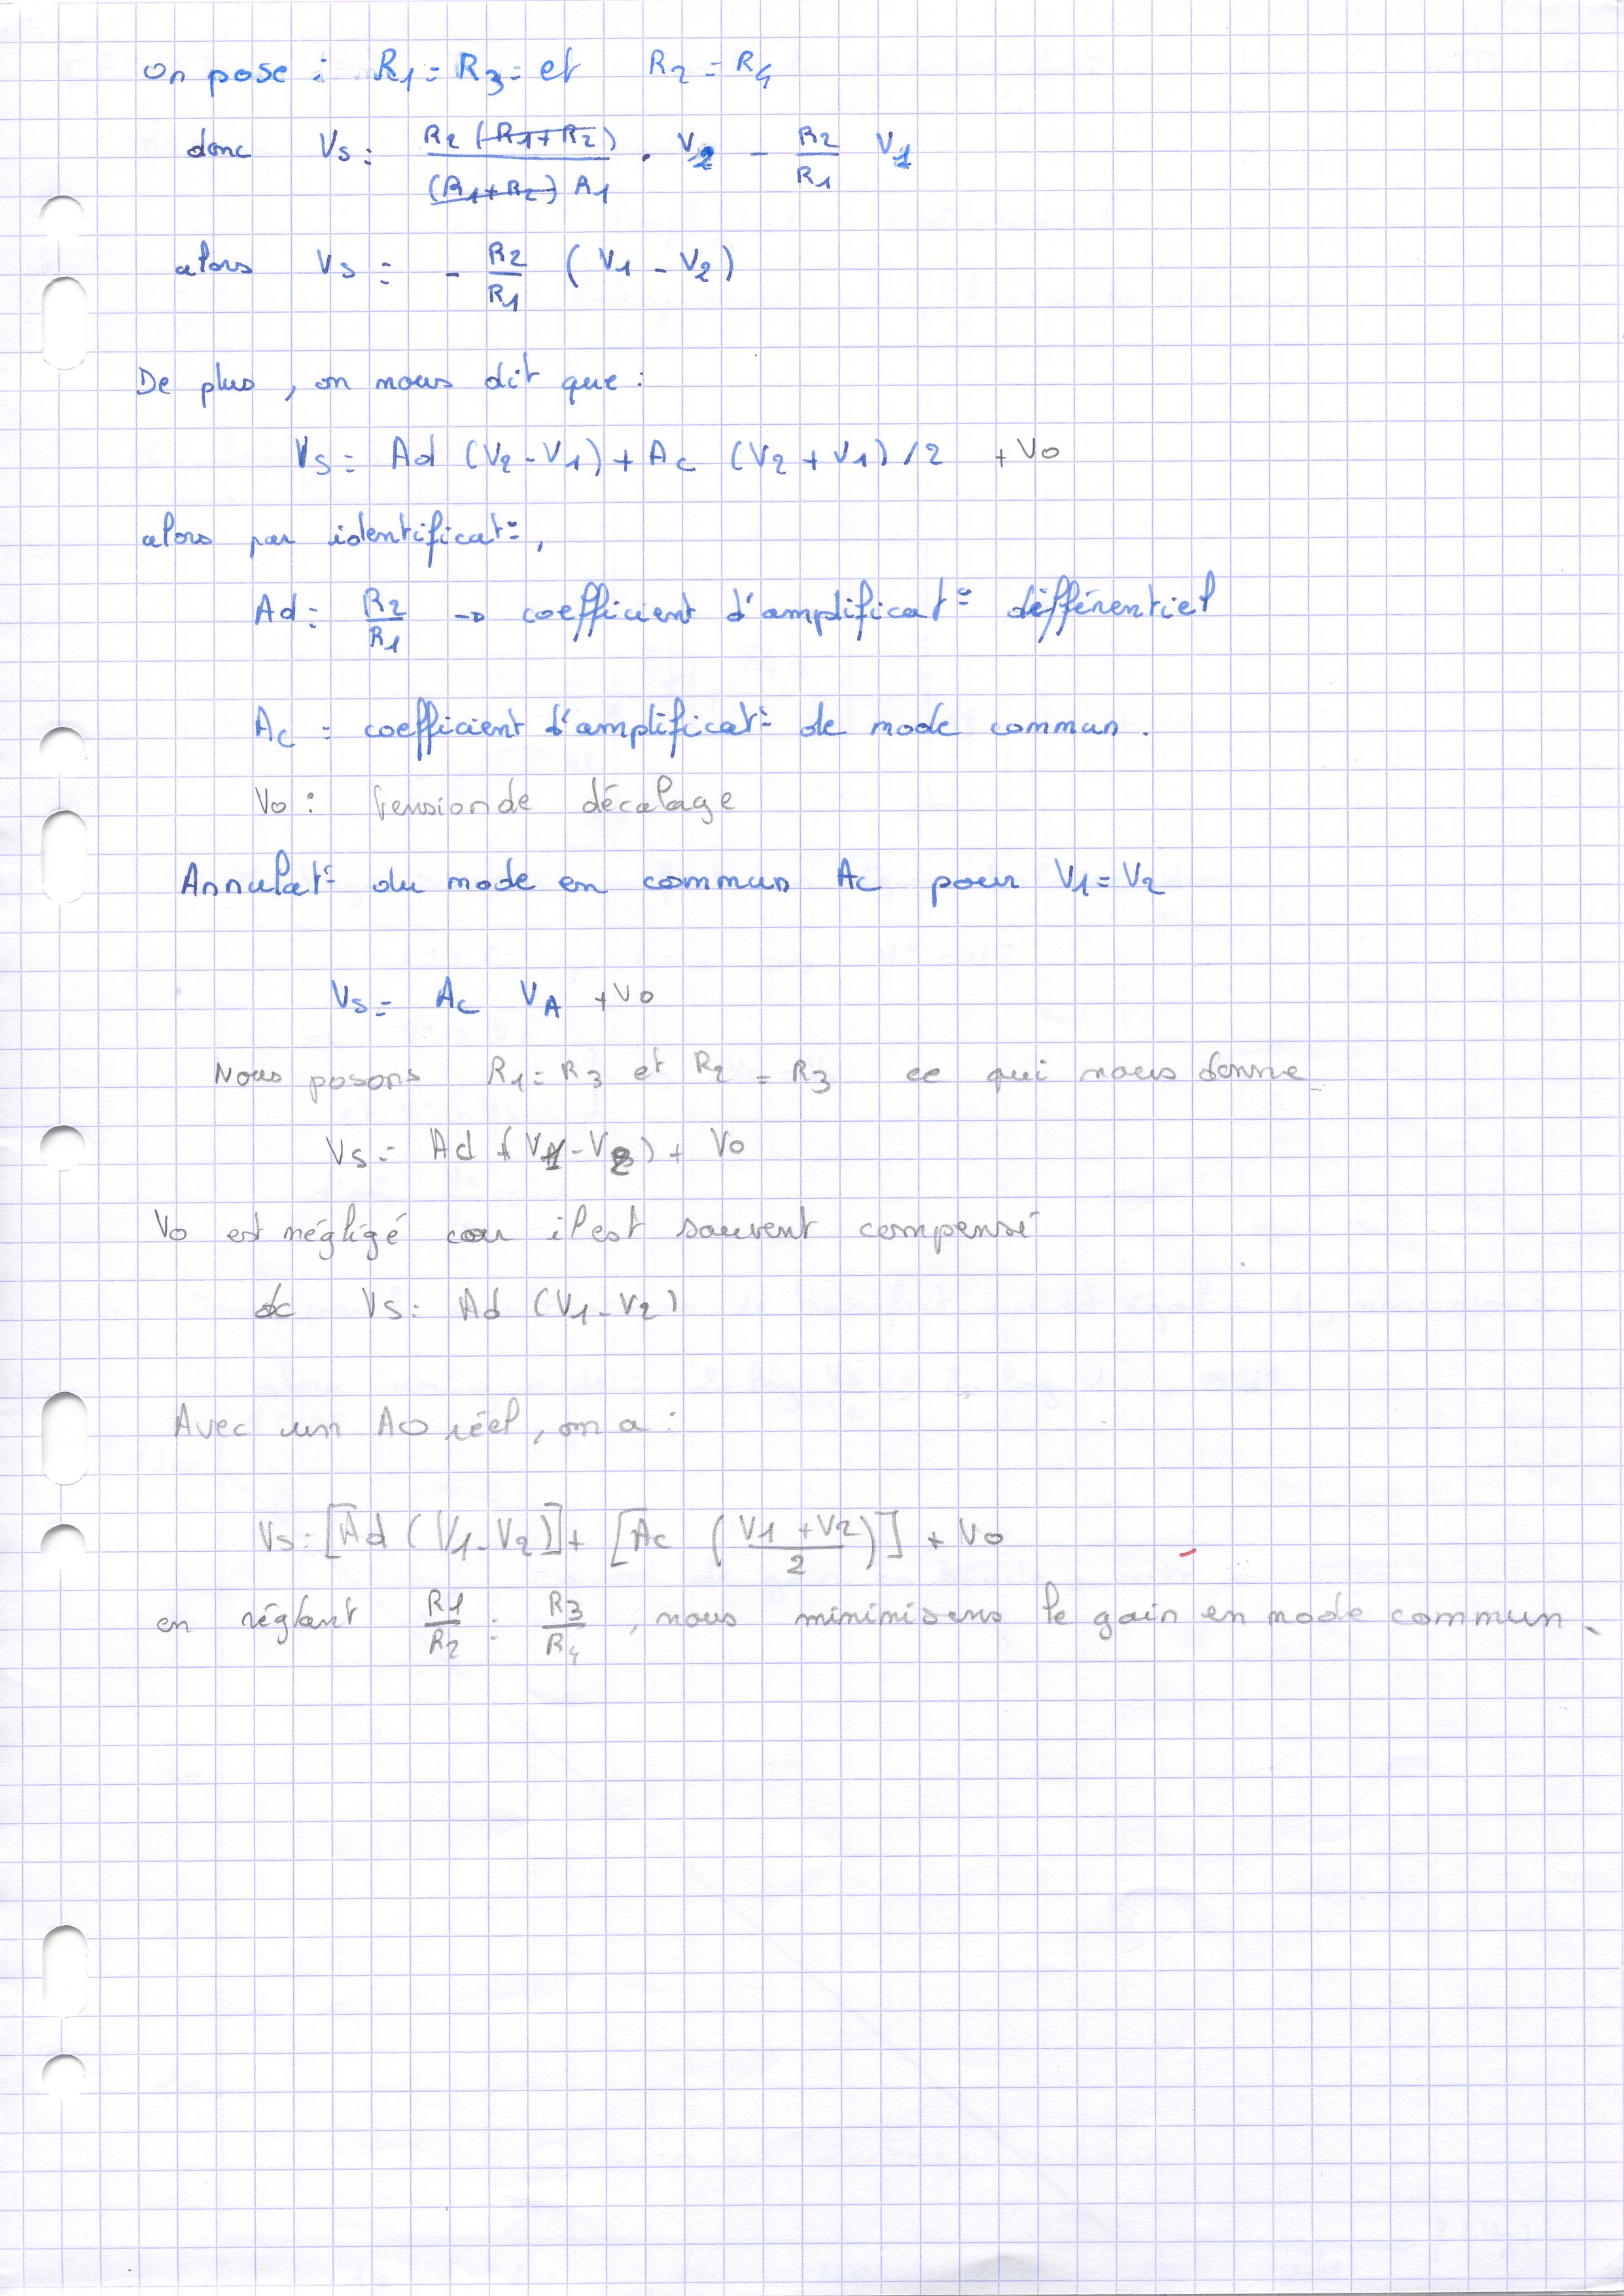 On pose : R1 = R3 = et R2 = R4
donc Vs = R2 (R1+R2) / (R1+R2) R1 . V2 - R2/R1 V1
alors Vs = - R2/R1 (V1 - V2)
De plus, on nous dit que :
Vs = Ad (V2 - V1) + Ac (V2 + V1) /2 + Vo
alors par identificat°,
Ad = R2/R1 → coefficient d'amplificat° différentiel
Ac = coefficient d'amplificat° de mode commun.
Vo : tension de décalage
Annulat° du mode en commun Ac pour V1 = V2
Vs = Ac VA + Vo
Nous posons R1 = R3 et R2 = R3 ce qui nous donne
Vs = Ad (V1 - V2) + Vo
Vo est négligé car il est souvent compensé
dc Vs = Ad (V1 - V2)
Avec un AO réel, on a :
Vs = [Ad (V1 - V2)] + [Ac (V1 + V2 / 2)] + Vo
en réglant R1/R2 = R3/R4, nous minimisons le gain en mode commun.